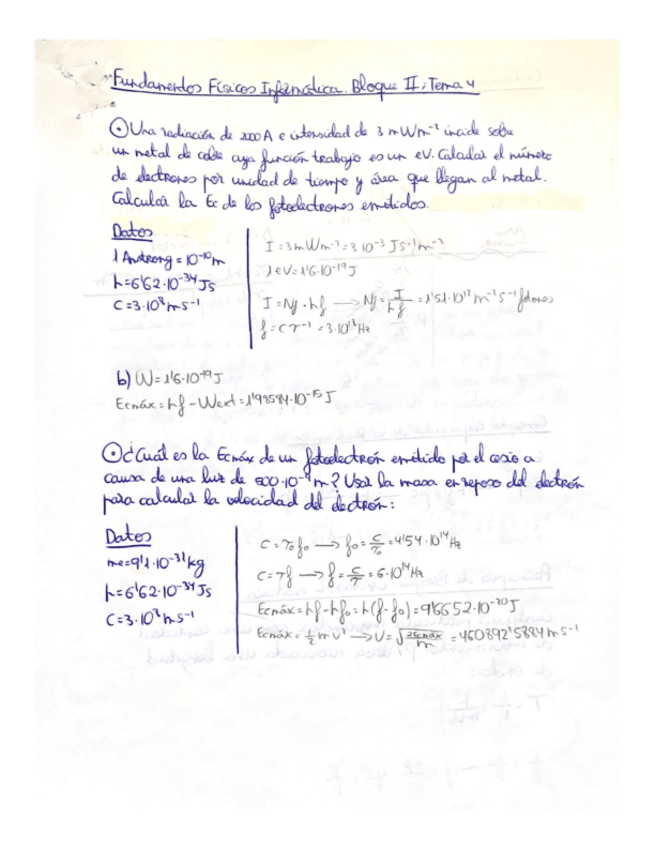 Fundamentos Físicos Informática. Bloque II, Tema 4
Una radiación de 2000 A e intensidad de 3 mWm⁻² incide sobre
un metal de cobre cuya función trabajo es un eV. Calcular el número
de electrones por unidad de tiempo y área que llegan al metal.
Calcular la Ec de los fotoelectrones emitidos.
Datos
1 Anstrong = 10⁻¹⁰ m
h=6'62·10⁻³⁴ Js
C=3·10⁸ m s⁻¹
I=3mWm⁻²=3·10⁻³ J s⁻¹ m⁻²
1eV=1'6·10⁻¹⁹ J
I=Nf·hf → Nf= I/hf =1'51·10¹² m⁻² s⁻¹ fotones
f=c r⁻¹=3·10¹⁸ Hz
b) W=1'6·10⁻¹⁹ J
Ecmáx=hf-Wext=1'99584·10⁻¹⁵ J
¿Cuál es la Ecmáx de un fotoelectrón emitido por el cesio a
causa de una luz de 500·10⁻⁹ m? Usar la masa en reposo del electrón
para calcular la velocidad del electrón:
Datos
me=9'1·10⁻³¹ kg
h=6'62·10⁻³⁴ Js
C=3·10⁸ m s⁻¹
C=r₀f₀ → f₀= c/r₀ =4'54·10¹⁴ Hz
C=rf → f= c/r =6·10¹⁴ Hz
Ecmáx=hf-hf₀=h(f-f₀)=9'6652·10⁻²⁰ J
Ecmáx= ½ m v² → v=√(2Ecmáx/m) =460892'5884 m s⁻¹